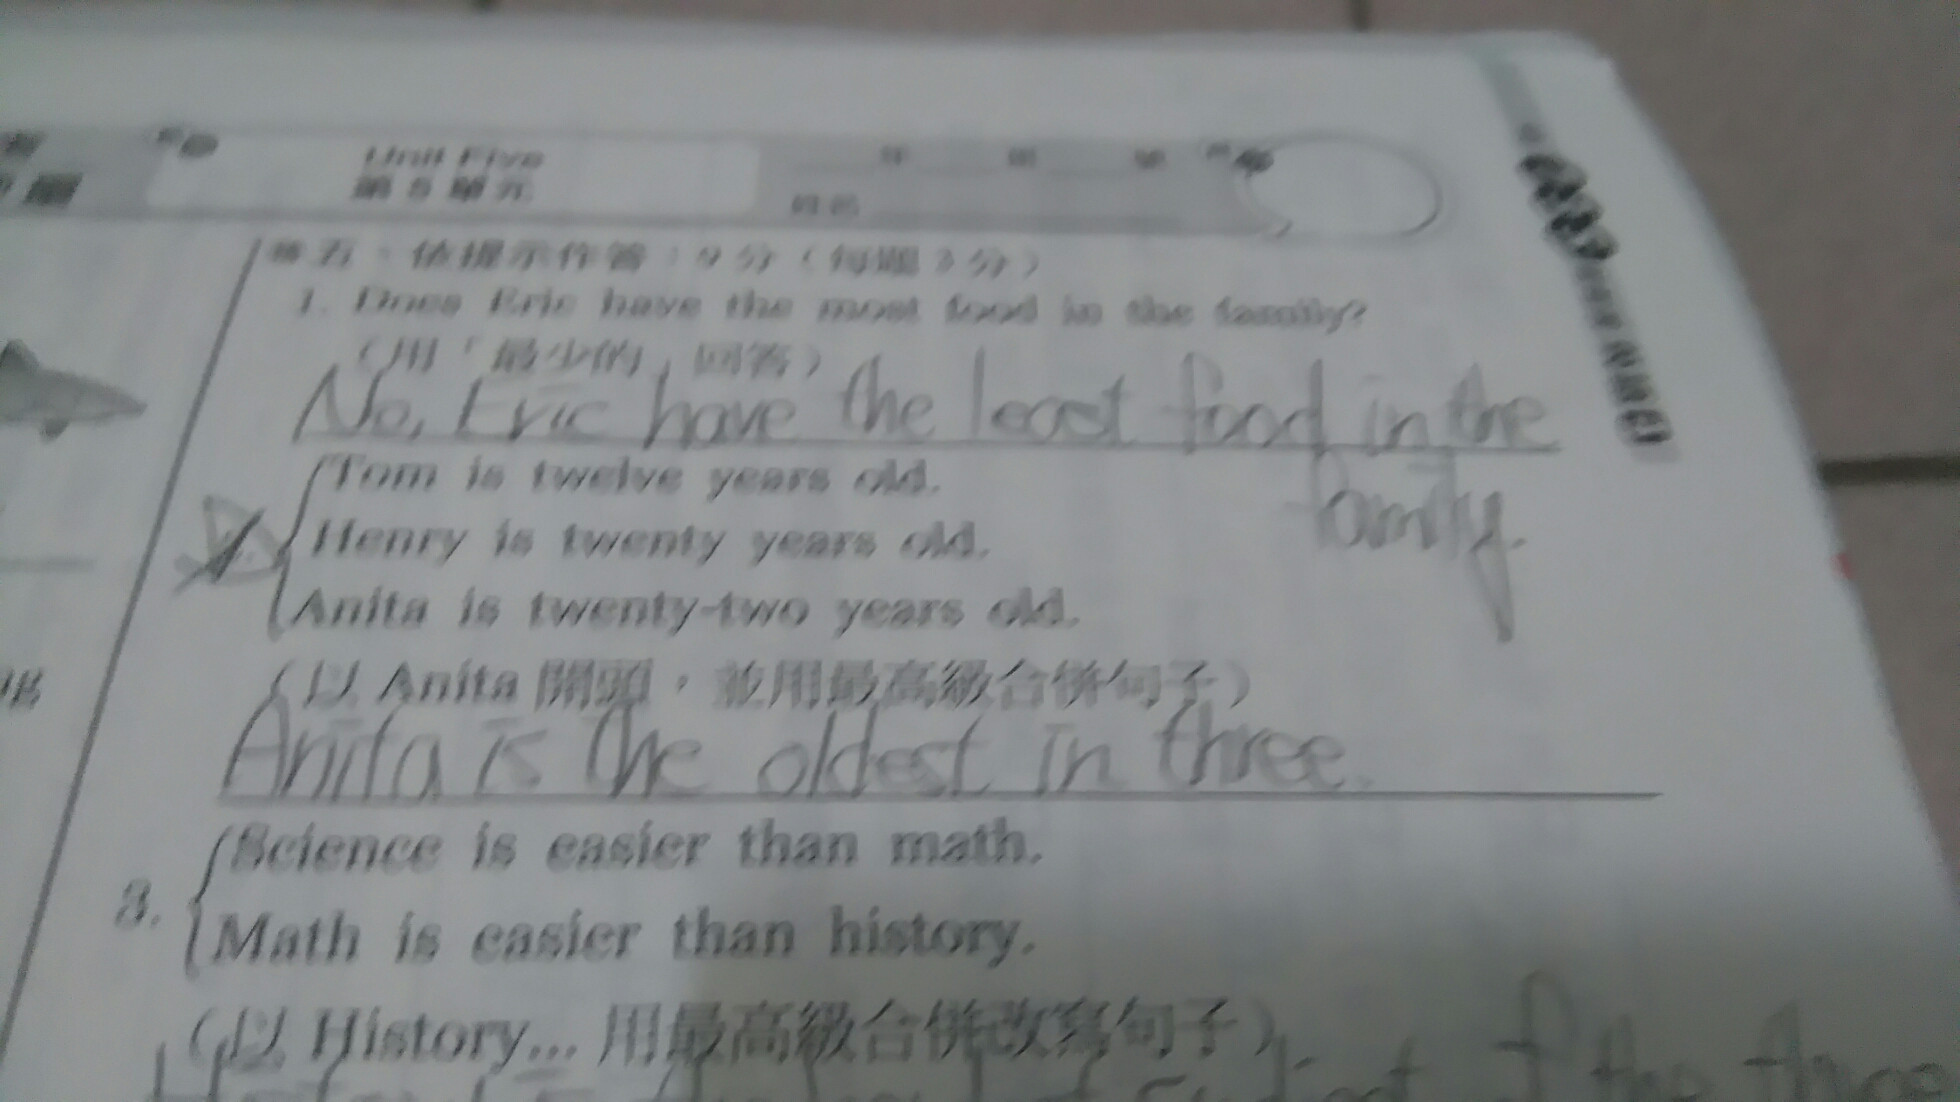 Unit Five
第 5 單元
五、依提示作答：9 分（每題 3 分）
1. Does Eric have the most food in the family?
（用「最少的」回答）
No, Eric have the least food in the
family.
Tom is twelve years old.
Henry is twenty years old.
Anita is twenty-two years old.
（以 Anita 開頭，並用最高級合併句子）
Anita is the oldest in three.
Science is easier than math.
3.
Math is easier than history.
（以 History... 用最高級合併改寫句子）
of the three